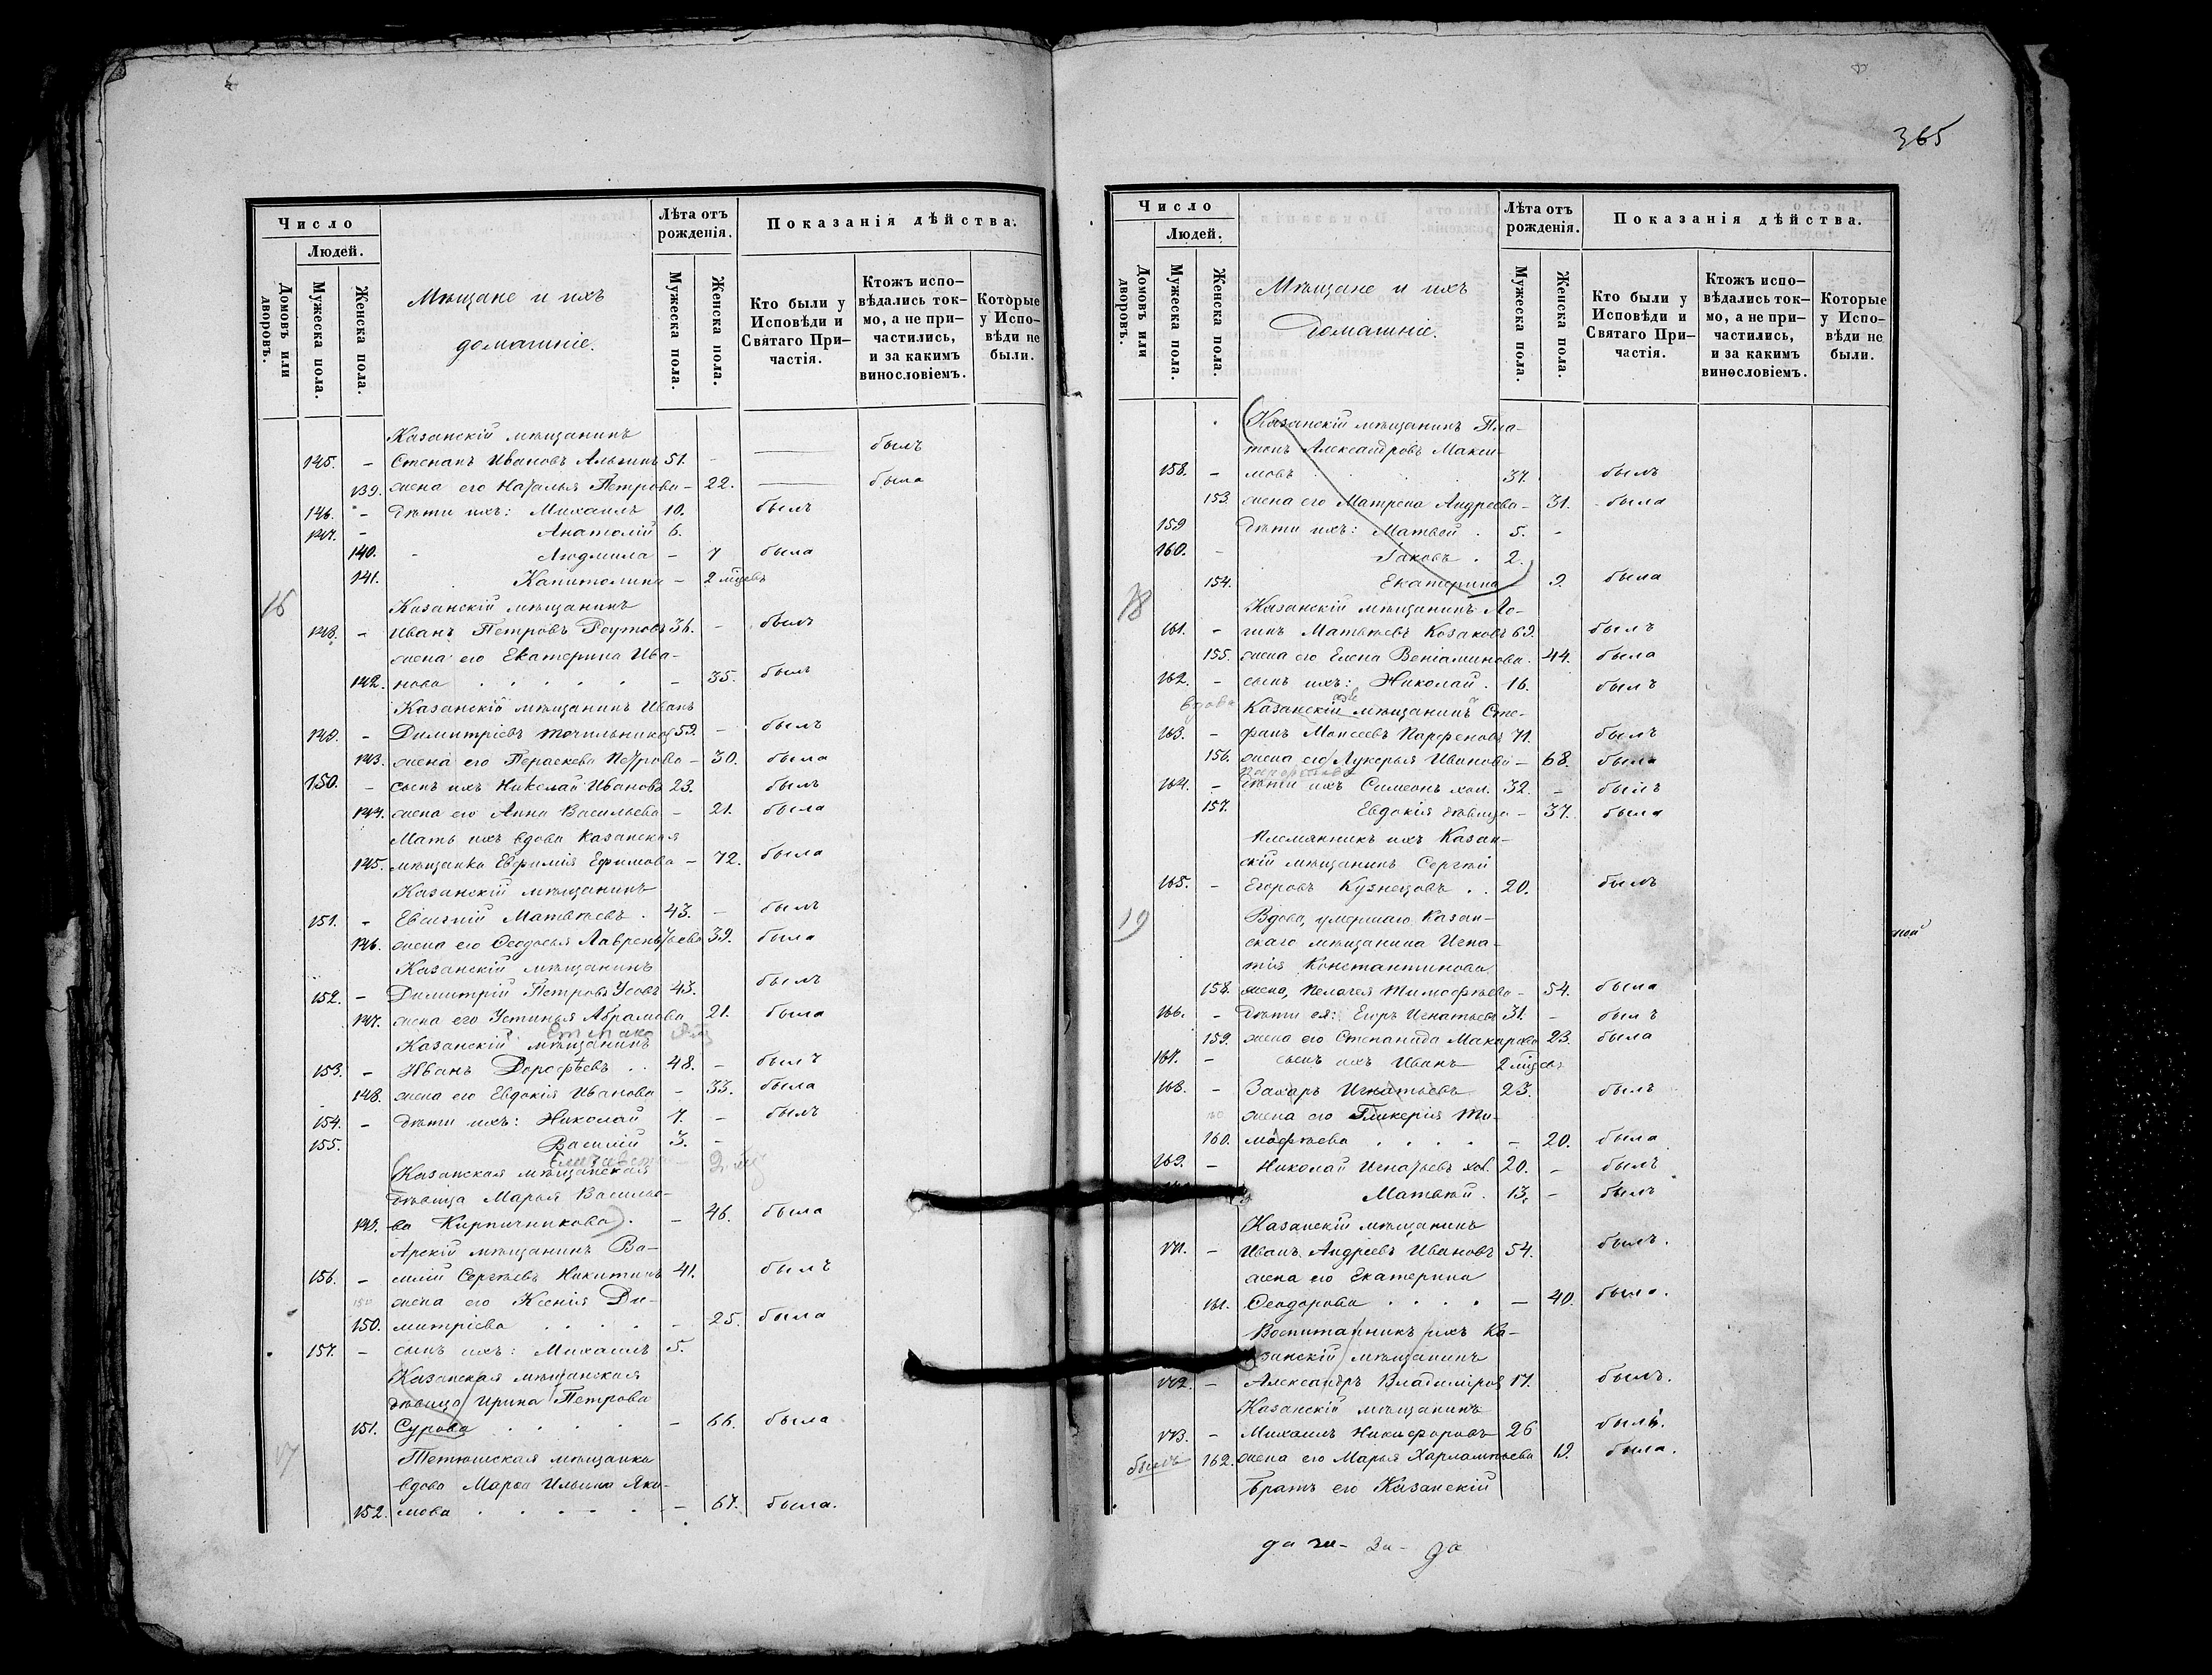 365
Число
Людей.
Домовъ или дворовъ.
Мужеска пола.
Женска пола.
Мѣщане и ихъ
домашніе.
Лѣта отъ рожденія.
Мужеска пола.
Женска пола.
Показанія дѣйства.
Кто были у Исповѣди и Святаго Причастія.
Ктожъ исповѣдались токмо, а не причастились, и за какимъ винословіемъ.
Которые у Исповѣди не были.
Казанскій мѣщанинъ
145. – Степанъ Ивановъ 51. – былъ
139. жена его Наталья Петрова – 22. была
146. – дѣти ихъ: Михаилъ 10. былъ
147. – Анатолій 6.
140. Людмила – 7 была
141. Капитолина – 2 мѣсяцевъ
16 Казанскій мѣщанинъ
148. – Иванъ Петровъ Реутовъ 36. – былъ
жена его Екатерина Ива-
142. нова – 35. былъ
Казанскій мѣщанинъ Иванъ
149. – Димитріевъ Точильниковъ 59. – былъ
143. жена его Параскева Петрова – 30. была
150. – сынъ ихъ Николай Ивановъ 23. былъ
144. жена его Анна Васильева – 21. была
Мать ихъ вдова Казанская
145. мѣщанка Евфимія Ефимова – 72. была
Казанскій мѣщанинъ
151. – Евгеній Матвѣевъ . 43. – былъ
146. жена его Ѳеодосья Лаврентьева 39. была
Казанскій мѣщанинъ
152. – Димитрій Петровъ Усовъ 43. былъ
147. жена его Устинья Абрамова 21. была
Казанскій мѣщанинъ
153. – Иванъ Дорофѣевъ . . 48. – былъ
148. жена его Евдокія Иванова – 33. была
154. – дѣти ихъ: Николай 7. – былъ
155. Василій 3. –
Елизавета –
Казанская мѣщанская
дѣвица Марья Василье-
149. ва Кирпичникова . – 46. была
Арскій мѣщанинъ Ва-
156. – силій Сергѣевъ Никитинъ 41. былъ
150 жена его Ксенія Ди-
150. митріева – 25. была
157. – сынъ ихъ: Михаилъ 5.
Казанская мѣщанская
дѣвица Ирина Петрова
151. Сурова – 66. была
17 Тетюшская мѣщанка
вдова Марья Ильина Яки-
152. мова – 67. была.
Число
Людей.
Домовъ или дворовъ.
Мужеска пола.
Женска пола.
Мѣщане и ихъ
домашніе.
Лѣта отъ рожденія.
Мужеска пола.
Женска пола.
Показанія дѣйства.
Кто были у Исповѣди и Святаго Причастія.
Ктожъ исповѣдались токмо, а не причастились, и за какимъ винословіемъ.
Которые у Исповѣди не были.
Казанскій мѣщанинъ Пла-
тонъ Александровъ Макси-
158. – мовъ 37. былъ
153. жена его Матрена Андреева – 31. была
159 дѣти ихъ: Матвей . 5. –
160. – Іаковъ . 2.
154. Екатерина – 9. была
18 Казанскій мѣщанинъ Ло-
161. – гинъ Матвѣевъ Козаковъ 69. былъ
155. жена его Елена Веніаминова. 44. была
162. – сынъ ихъ: Николай . 16. былъ
вдова Казанскій мѣщанинъ Сте-
163. – фанъ Моисеевъ Парфеновъ 71. былъ
156. жена его Лукерья Иванова – 68. была
Парфенова
164. – дѣти ихъ Симеонъ хол. 32. – былъ
157. Евдокія дѣвица – 37. была
Племянникъ ихъ Казан-
скій мѣщанинъ Сергѣй
165. – Егоровъ Кузнецовъ . . 20. былъ
19 Вдова, умершаго Казан-
скаго мѣщанина Игна-
тія Константинова
158. жена, Пелагея Тимофѣева – 54. была
166. – дѣти ея: Егоръ Игнатьевъ 31. – былъ
159. жена его Степанида Макарова 23. была
167. – сынъ ихъ Иванъ 2 мѣсяц.
168. – Захаръ Игнатьевъ 23. былъ
жена его Гликерія Ти-
160. мофѣева – 20. была
169. – Николай Игнатьевъ хол. 20. – былъ
Матвѣй . 13. – былъ
Казанскій мѣщанинъ
171. – Иванъ Андреевъ Ивановъ 54. былъ.
жена его Екатерина
161. Ѳеодорова – 40. была.
Воспитанникъ ихъ Ка-
занскій мѣщанинъ
172. – Александръ Владиміровъ 17. былъ.
Казанскій мѣщанинъ
173. – Михаилъ Никифоровъ 26 былъ.
былъ 162. жена его Марья Харлампьева 19. была.
Братъ его Казанскій